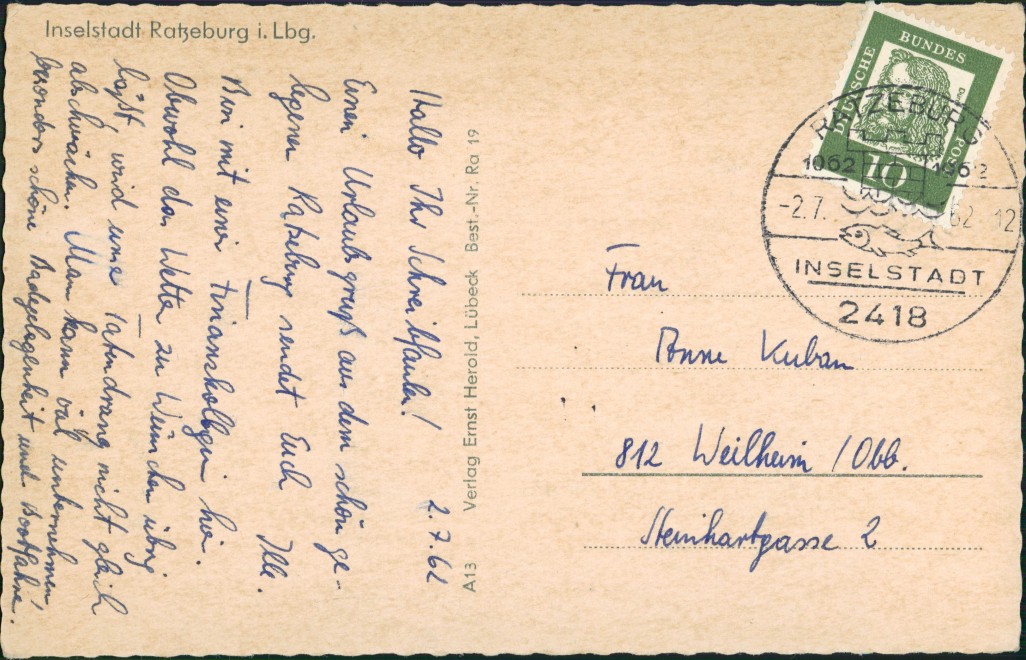 Inselstadt Ratzeburg i. Lbg.
2.7.62
Hallo Ihr Schreibfaulen!
Einen Urlaubsgruß aus dem schön ge-
legenen Ratzeburg sendet Euch Ille.
Bin mit einer Finanzkollegin hier.
Obwohl das Wetter zu Wünschen übrig
läßt, wird unser Tatendrang nicht gleich
abschwächen. Man kann viel unternehmen,
besonders schöne Badegelegenheit und Bootfahren.
A13 Verlag Ernst Herold, Lübeck Best.-Nr. Ra 19
DEUTSCHE BUNDESPOST
10
RATZEBURG
1062 1962
-2.7.62-12
INSELSTADT
2418
Frau
Anne Kuban
812 Weilheim /Obb.
Steinhartgasse 2